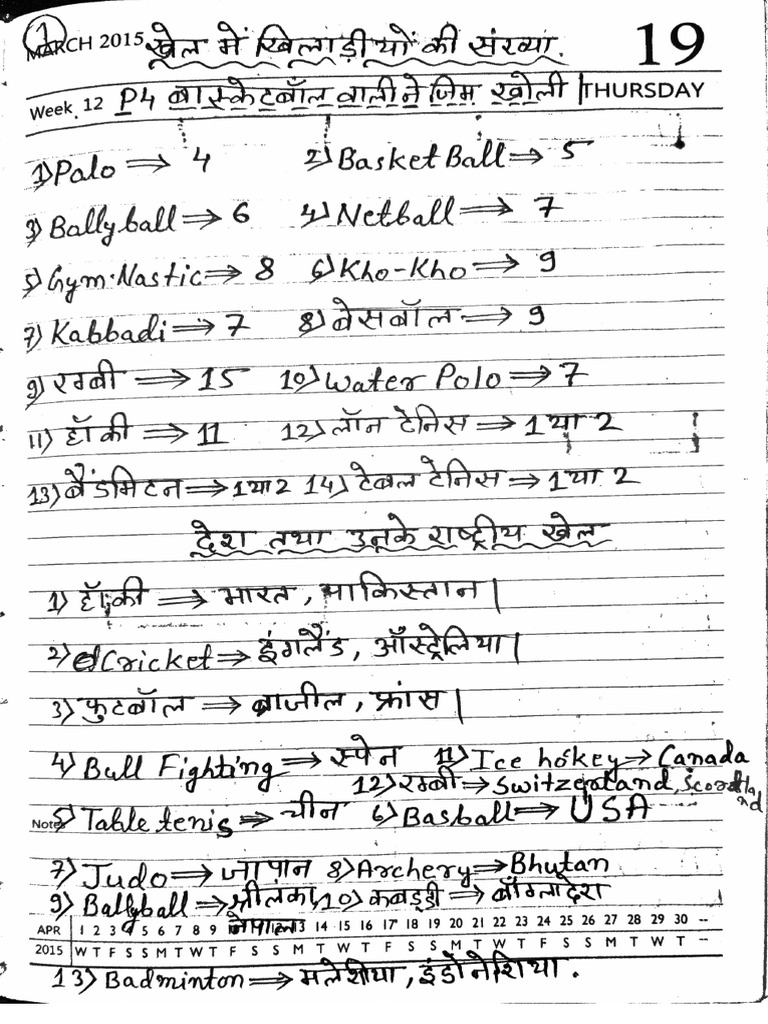 1
MARCH 2015 खेल में खिलाड़ीयों की संख्या. 19
Week. 12 P4 बास्केटबॉल वाली ने जिम खोली | THURSDAY
1) Palo ⇒ 4 2) BasketBall ⇒ 5
3) Ballyball ⇒ 6 4) Netball ⇒ 7
5) Gym.Nastic ⇒ 8 6) Kho-Kho ⇒ 9
7) Kabbadi ⇒ 7 8) बेसबॉल ⇒ 9
9) रग्बी ⇒ 15 10) Water Polo ⇒ 7
11) हॉकी ⇒ 11 12) लॉन टेनिस ⇒ 1 या 2
13) बैडमिंटन ⇒ 1 या 2 14) टेबल टेनिस ⇒ 1 या 2
देश तथा उनके राष्ट्रीय खेल
1) हॉकी ⇒ भारत, पाकिस्तान |
2) Cricket ⇒ इंगलैंड, ऑस्ट्रेलिया |
3) फुटबॉल ⇒ ब्राजील, फ्रांस |
4) Bull Fighting ⇒ स्पेन 11) Ice hokey → Canada
12) रग्बी → Switzerland, Scordland
Notes 5) Table tenis ⇒ चीन 6) Basball ⇒ USA
7) Judo ⇒ जापान 8) Archery ⇒ Bhutan
9) Ballyball ⇒ श्रीलंका, 10) कबड्डी ⇒ बांग्लादेश
नेपाल
APR 1 2 3 4 5 6 7 8 9 13 14 15 16 17 18 19 20 21 22 23 24 25 26 27 28 29 30 --
2015 W T F S S M T W T F S S M T W T F S S M T W T F S S M T W T --
13) Badminton ⇒ मलेशीया, इंडोनेशिया.